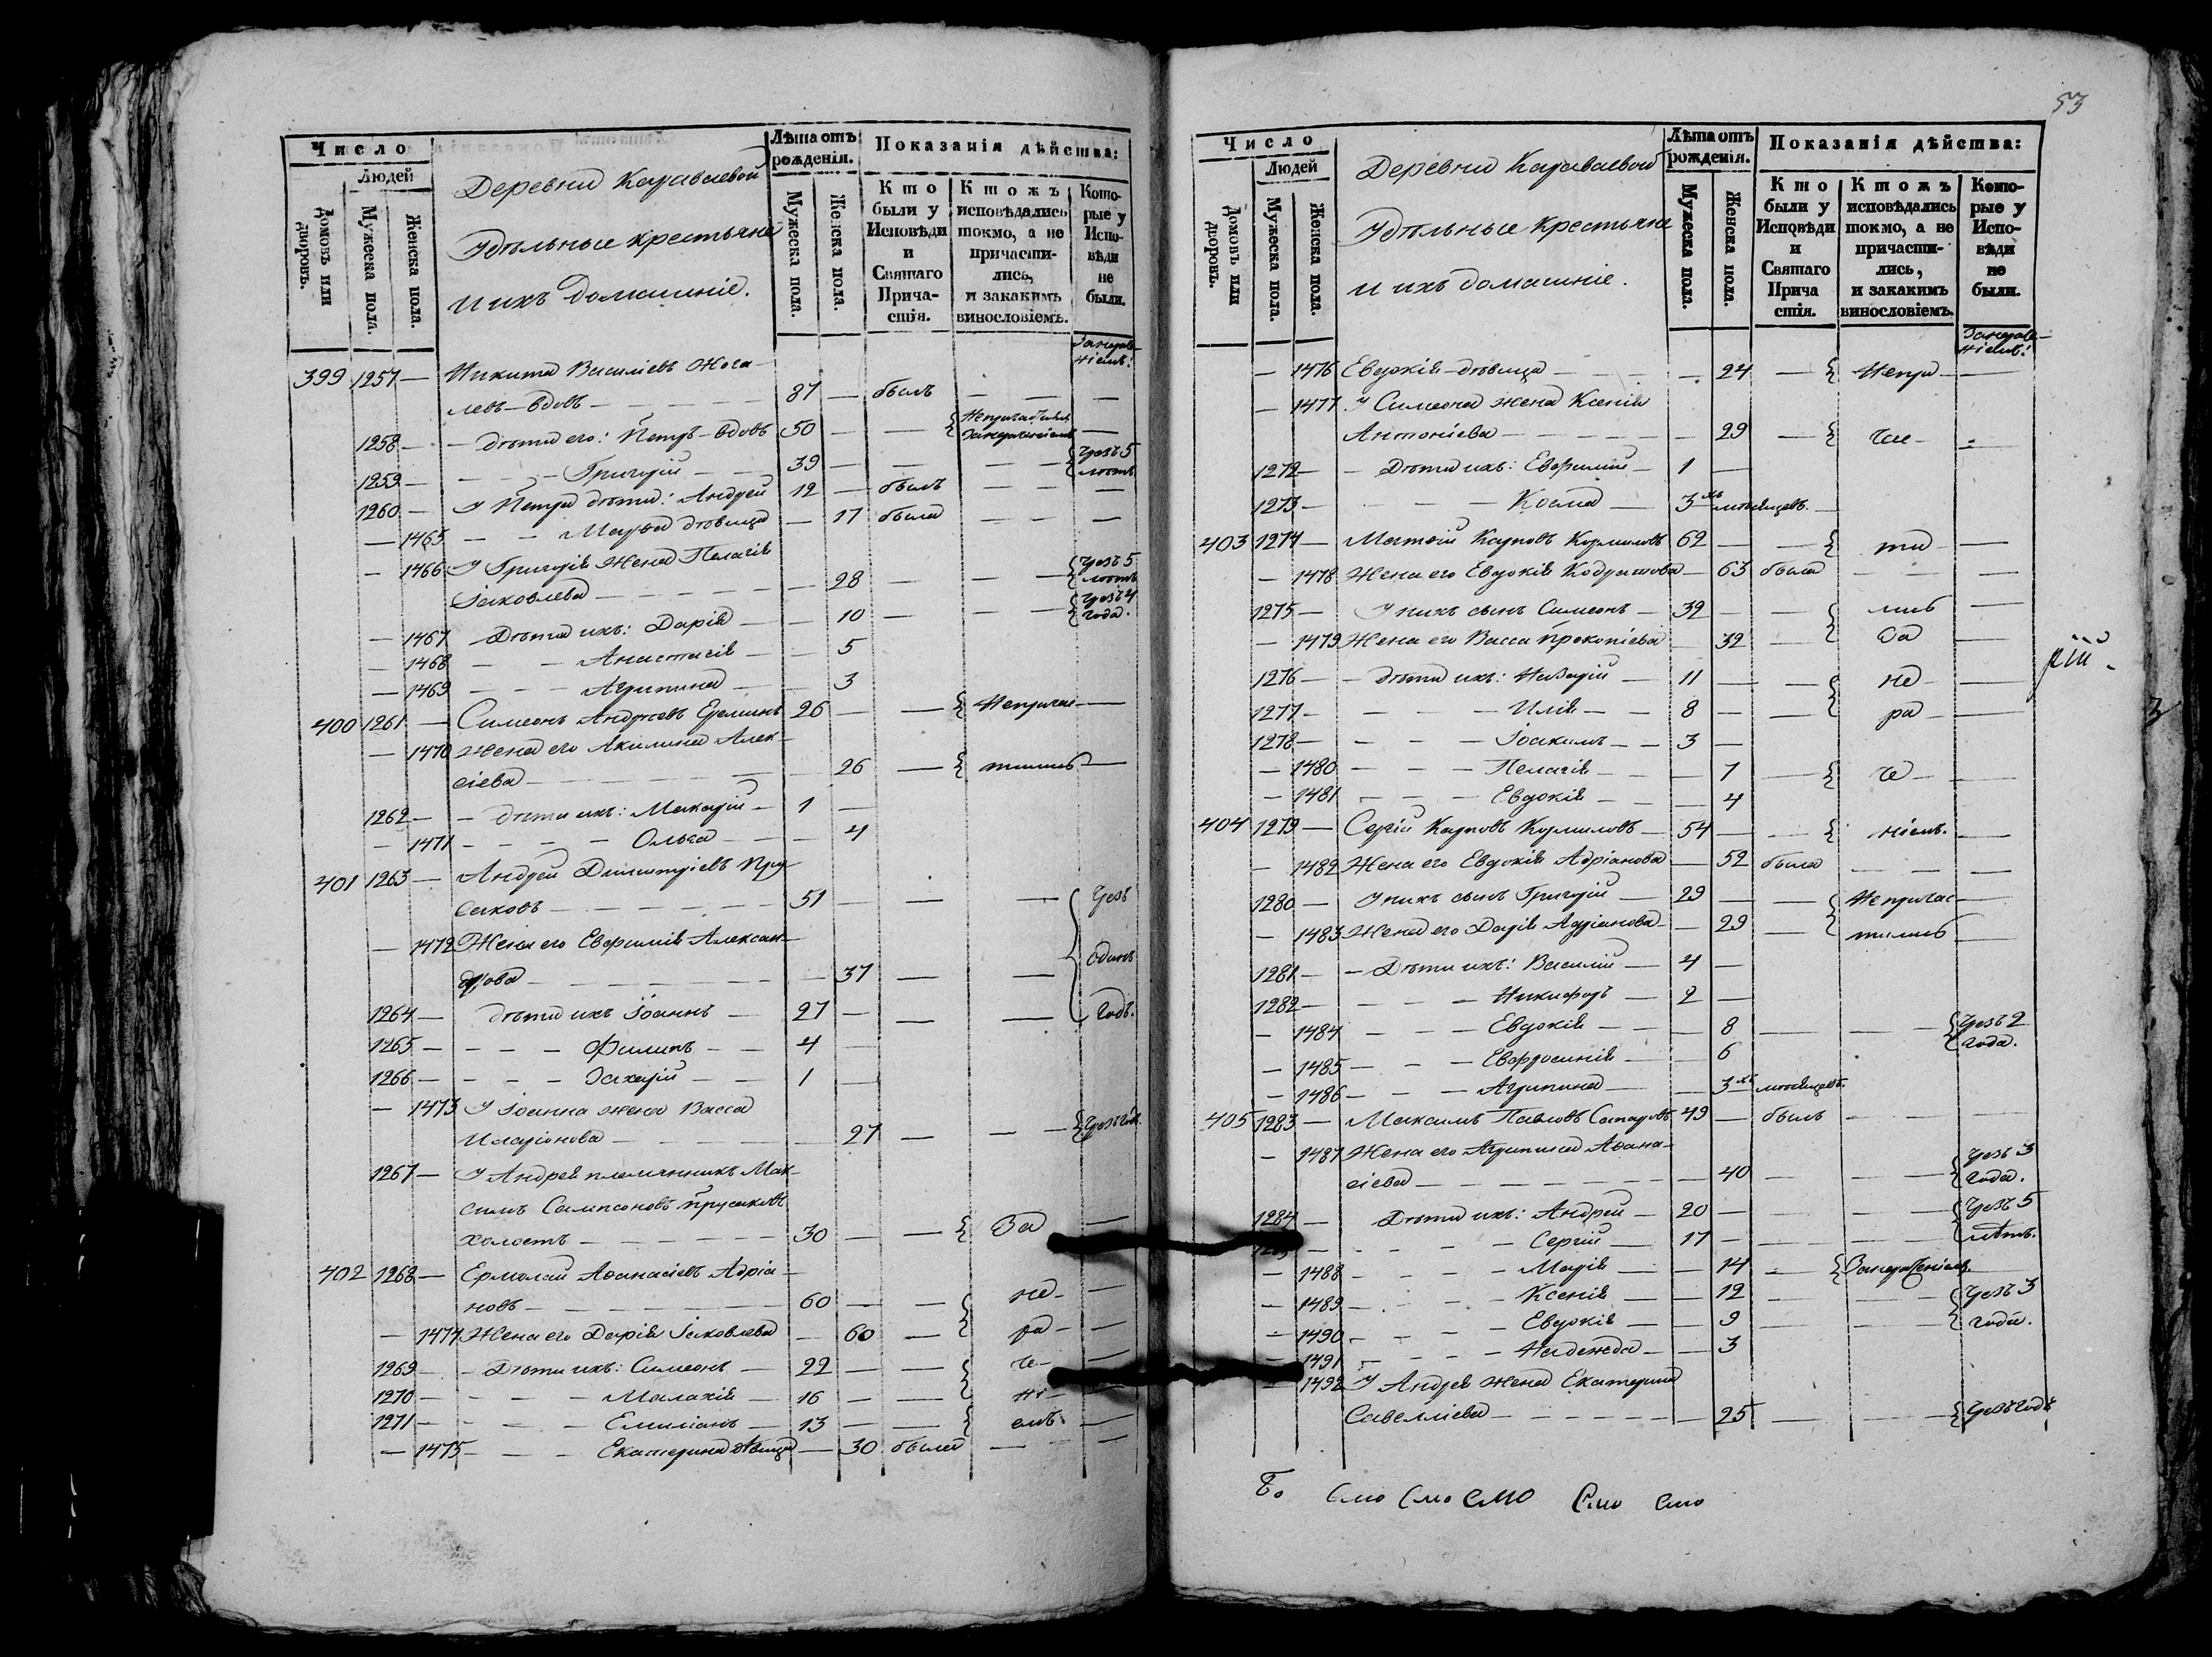 Число
Людей
Домовъ или дворовъ.
Мужеска пола.
Женска пола.
Деревни Караваевой
Удѣльные крестьяне
и ихъ домашніе.
Лѣта отъ рожденія.
Мужеска пола.
Женска пола.
Показанія дѣйства:
Кто были у Исповѣди и Святаго Прича-стія.
Ктожъ исповѣдались токмо, а не причасти-лись, и закакимъ винословіемъ.
Кото-рые у Испо-вѣди не были.
399 1257 — Никита Василіевъ
левъ — вдовъ — 87 — былъ — — —
1258 — — дѣти его: Петръ — вдовъ 50 — —
1259 — — — Григорій — — 39 — — — Чрезъ 5 лѣтъ
1260 — У Петра дѣти: Андрей 12 — былъ — — —
— 1465 — — Марѳа дѣвица — 17 была — — —
— 1466 У Григорія жена Пелагія
Іаковлева — — 28 — — — Чрезъ 5 лѣтъ
— 1467 — Дѣти ихъ: Дарія — — 10 — — — Чрезъ 4 года.
— 1468 — — Анастасія — — 5
— 1469 — — — Агрипина — — 3
400 1261 — Симеонъ Андреевъ Ереминъ 26 — — Непричас- —
— 1470 Жена его Акилина Алек-
сіева — — 26 — тились —
1262 — — дѣти ихъ: Макарій — 1 —
— 1471 — — — — Ольга — — 4
401 1263 — Андрей Димитріевъ Пру-
саковъ — — 51 — — — Чрезъ
— 1472 Жена его Евфимія Алексан-
дрова — — 37 — — одинъ
1264 — дѣти ихъ Іоаннъ — 27 — — — годъ.
1265 — — — — Филипъ — — 4 —
1266 — — — — Захарій — — 1 —
— 1473 У Іоанна жена Васса
Иларіонова — — 27 — — —
1267 — У Андрея племянникъ Мак-
симъ Сампсоновъ Прусаковъ
холостъ — — 30 — — За —
402 1268 — Ермолай Аѳанасіевъ Адріа-
новъ — — 60 — — не- —
— 1474 Жена его Дарія Іаковлева — 60 — ра- —
1269 — — Дѣти ихъ: Симеонъ — 22 — — че- —
1270 — — — — Малахія — 16 — — ні- —
1271 — — — — Емиліанъ — 13 — — емъ. —
— 1475 — — — Екатерина дѣвица — 30 была — —
53
Число
Людей
Домовъ или дворовъ.
Мужеска пола.
Женска пола.
Деревни Караваевой
Удѣльные крестьяне
и ихъ домашніе.
Лѣта отъ рожденія.
Мужеска пола.
Женска пола.
Показанія дѣйства:
Кто были у Исповѣди и Святаго Прича стія.
Ктожъ исповѣдались токмо, а не причасти-лись, и закакимъ винословіемъ.
Кото-рые у Испо-вѣди не были.
— 1476 Евдокія — дѣвица — — — 24 — Непри- —
— 1477 У Симеона жена Ксенія
Антоніева — — 29 — час- —
1272 — — Дѣти ихъ: Евфимій — 1 —
1273 — — — Косма — 3 мѣсяцевъ.
403 1274 — Матѳій Карповъ Кормиловъ 62 — — ти- —
— 1478 Жена его Евдокія Кодратова — 63 была — — —
1275 — У нихъ сынъ Симеонъ — 39 — лись —
— 1479 Жена его Васса Прокопіева — 32 — За —
1276 — — дѣти ихъ: Назарій — 11 — — не- —
1277 — — — — Илія — — 8 — — ра- —
1278 — — — — Іоакимъ — — 3 —
— 1480 — — — Пелагія — — 7 — че- —
— 1481 — — — Евдокія — — 4
404 1279 — Сергій Карповъ Кормиловъ — 54 — — ніемъ. —
— 1482 Жена его Евдокія Адріанова — 52 была — — —
1280 — У нихъ сынъ Григорій — 29 — — Непричас- —
— 1483 Жена его Дарія Адріанова — — 29 — тились —
1281 — — Дѣти ихъ: Василій — 4 —
1282 — — — — Никифоръ — 2 —
— 1484 — — — Евдокія — — 8 — — Чрезъ 2 года.
— 1485 — — — Евфросинія — — 6
— 1486 — — — Агрипина — — 3 мѣсяцевъ.
405 1283 — Максимъ Павловъ 49 — былъ — — —
— 1487 Жена его Агрипина Аѳана-
сіева — — 40 — — Чрезъ 3 года.
1284 — Дѣти ихъ: Андрей — 20 — — — Чрезъ 5
— — — — Сергій — 17 — — — лѣтъ.
— 1488 — — — Марія — — 14 — Занераченіемъ.
— 1489 — — — Ксенія — — 12 — — Чрезъ 3
— 1490 — — — Евдокія — — 9 — — года.
— 1491 — — — Надежда — — 3
— 1492 У Андрея жена Екатерина
Савелліева — — 25 — — Чрезъ годъ